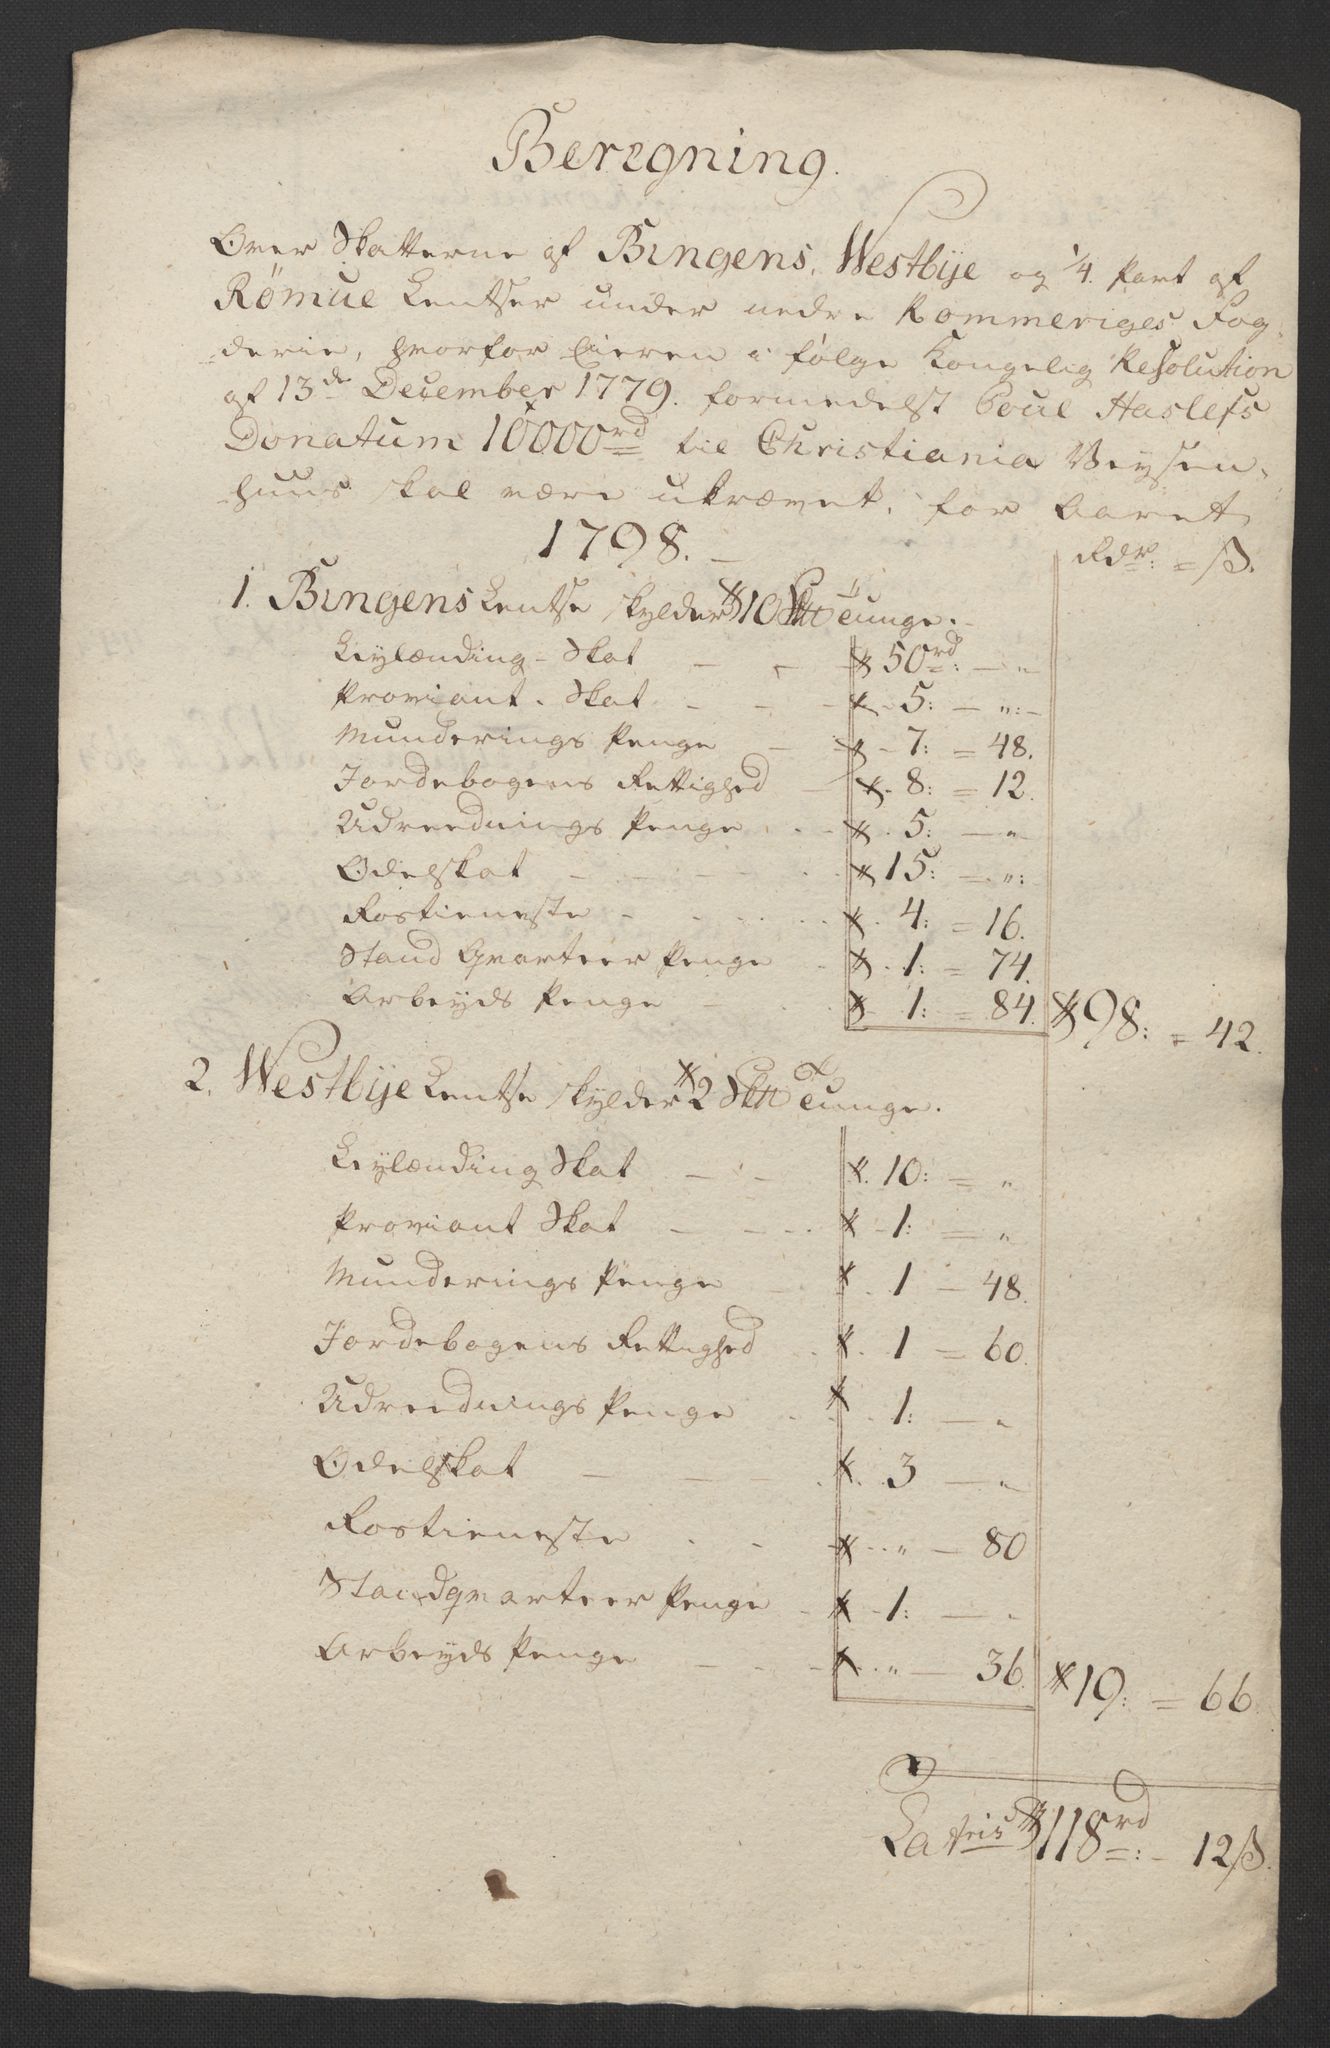 Beregning.
Over Skatterne af Bingens, Westbÿe og 1/4 Part af
Römue Lentser under nedre Rommeriges Fog-
derie, hvorfor Eieren i følge Kongelig Resolution
af 13de December 1779. formedelst Poul Haslefs
Donatum 10000rd til Christiania Veysen-
huus skal være ukrævet, for Aaret
1798.
Rdr: = ß.
1. Bingens Lentse skylder 10 Tunge.
Leylænding-Skat 50rd: — "
Proviant-Skat 5: — ":
Munderings Penge 7: = 48.
Jordebogens Rettighed 8: = 12.
Udreednings Penge 5: — "
Odelskat 15: = ":
Rostieneste 4: = 16.
Stand Qvarteer Penge 1: = 74.
Arbeyds Penge 1: = 84. 98: = 42.
2. Westbÿe Lentse skylder 2 Tunge.
Leylænding Skat 10: = "
Proviant Skat 1: = "
Munderings Penge 1 — 48.
Jordebogens Rettighed 1 = 60.
Udreednings Penge 1: — "
Odelskat 3 — "
Rostieneste " — 80
Standqvarteer Penge 1: — "
Arbeyds Penge " — 36. 19: = 66.
Lateris 118rd =: — 12 ß.